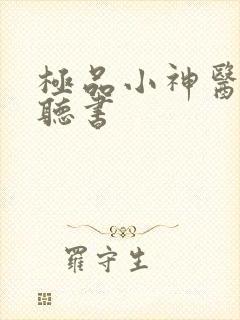 極品小神醫
聽書
羅守生